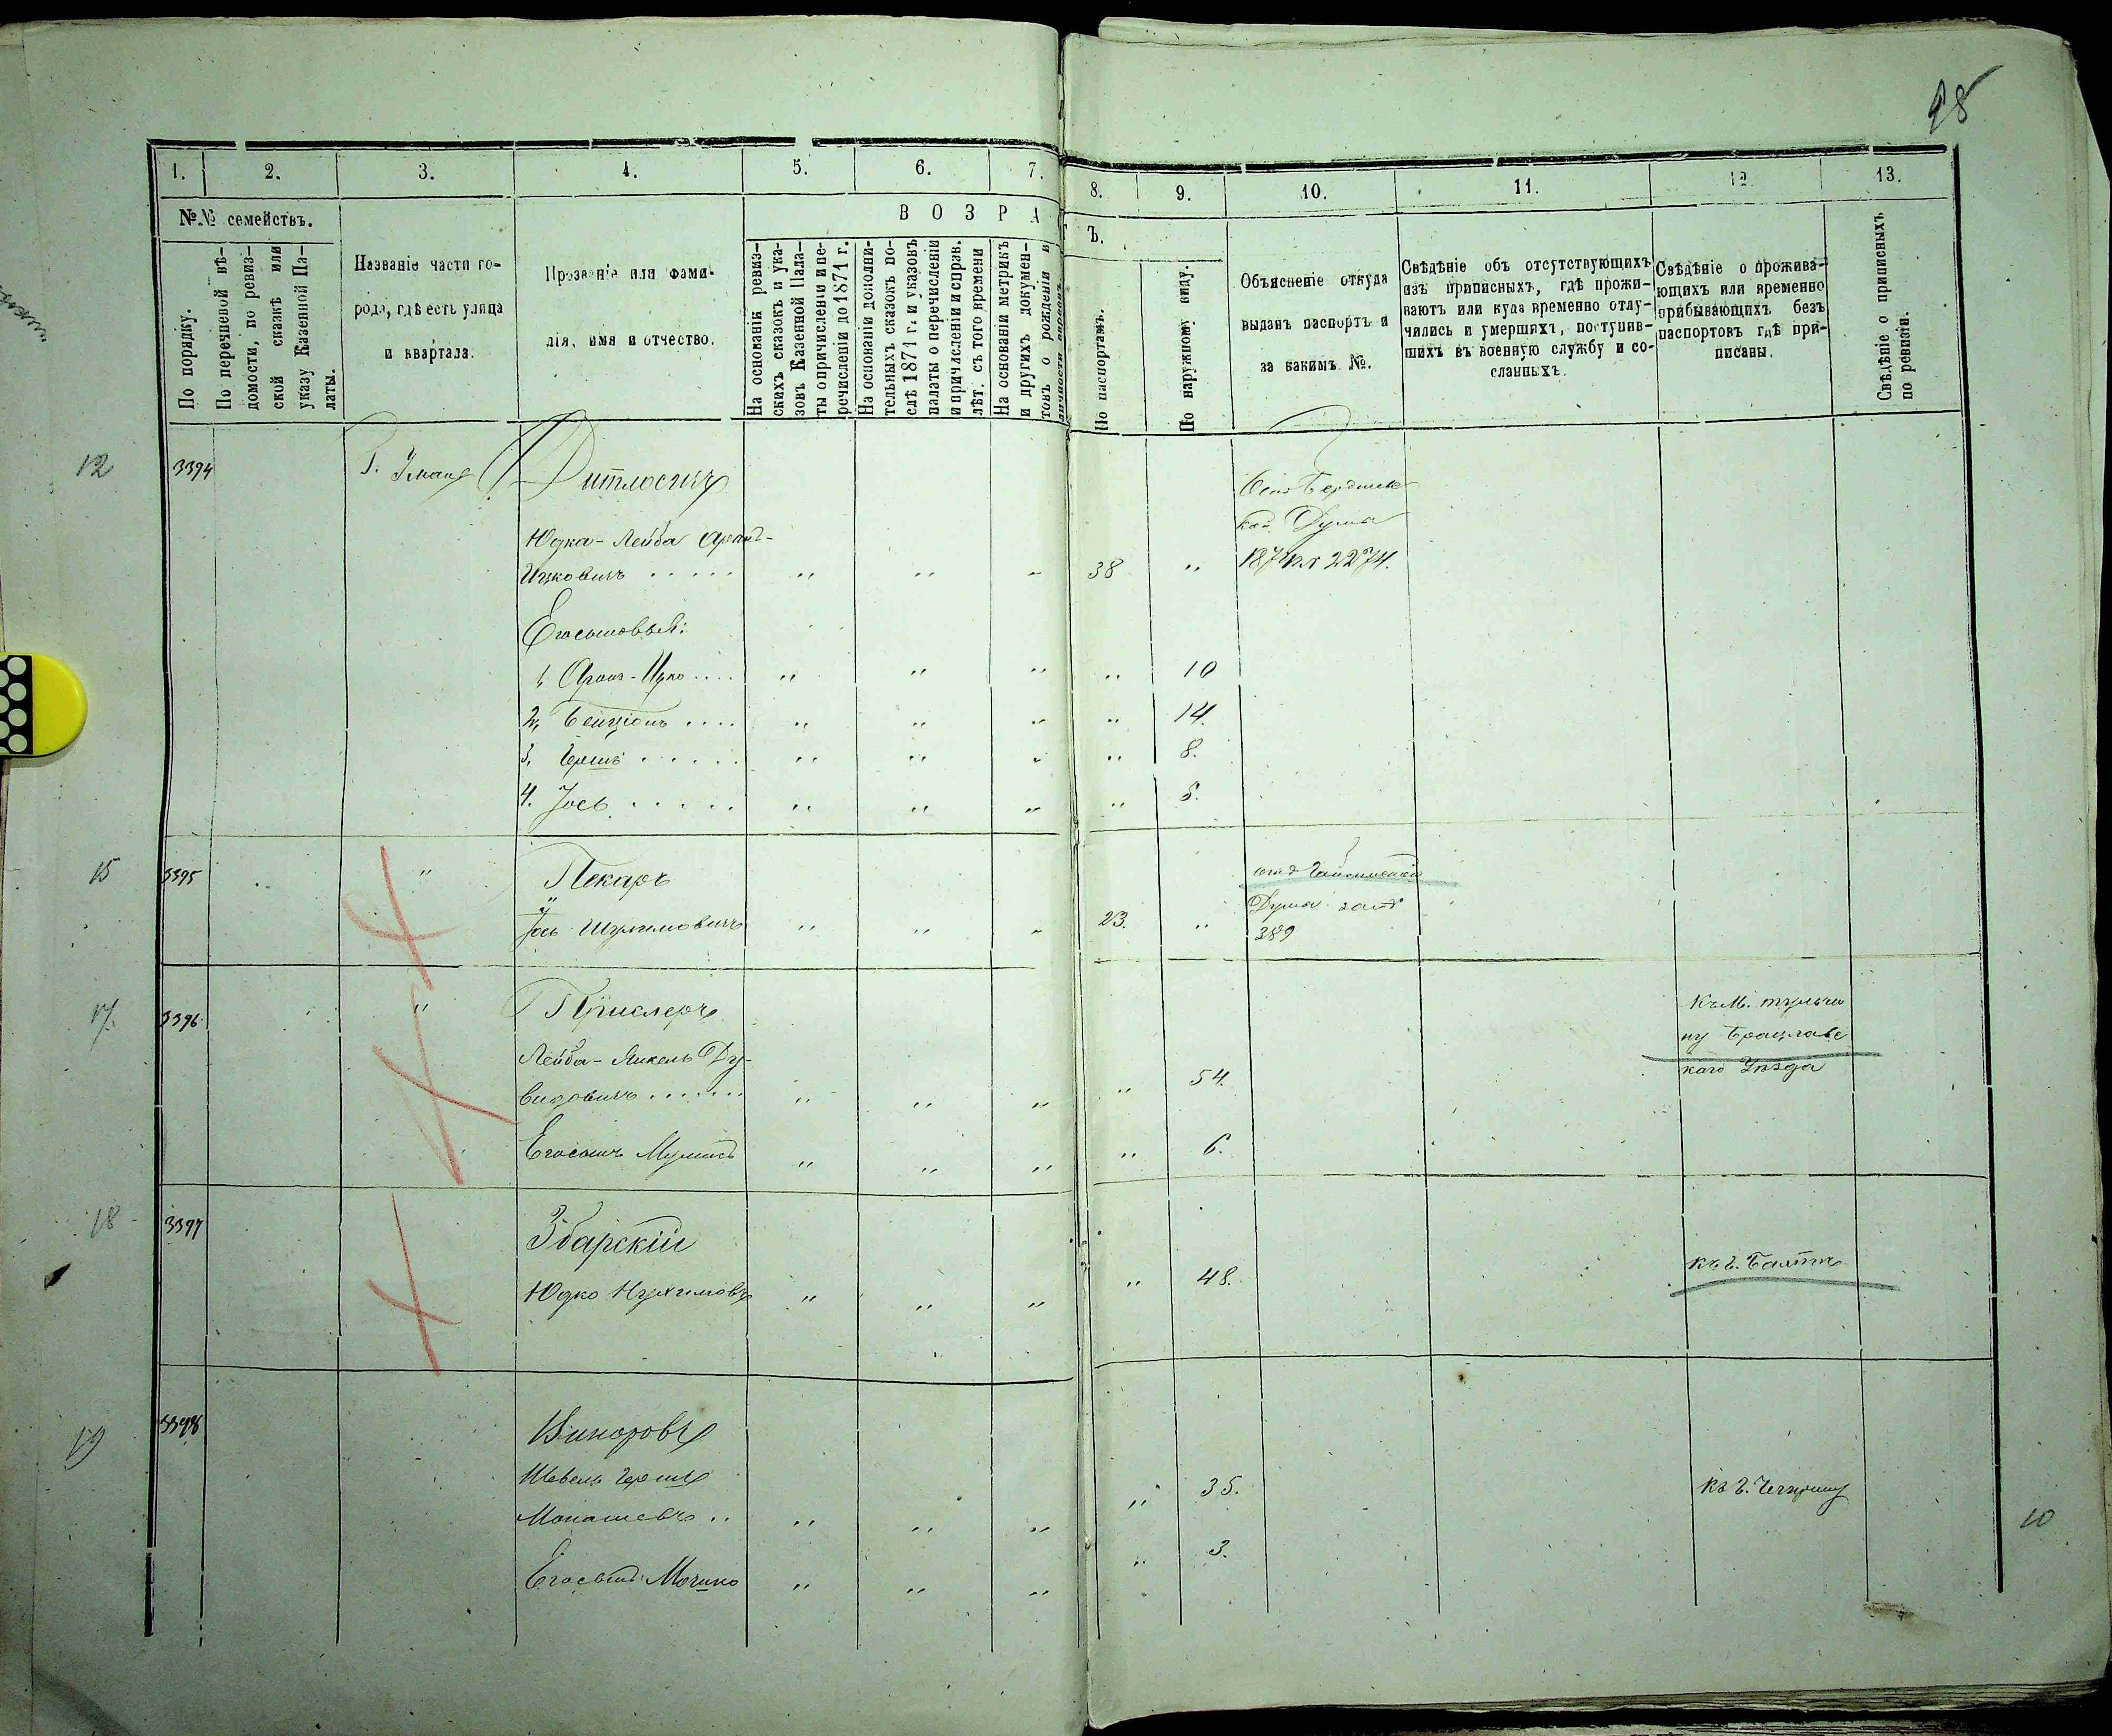 28
1. 2. 3. 4. 5. 6. 7. 8. 9. 10. 11. 12. 13.
№№ семействъ.
По порядку.
По перечневой вѣ-
домости, по ревиз-
ской сказкѣ или
указу Казенной Па-
латы.
Названіе части го-
рода, гдѣ есть улица
и квартала.
Прозваніе или фами-
лія, имя и отчество.
ВОЗРАСТЪ.
На основаніи ревиз-
скихъ сказокъ и ука-
зовъ Казенной Пала-
ты о причисленіи и пе-
речисленіи до 1871 г.
На основаніи дополни-
тельныхъ сказокъ по-
слѣ 1871 г. и указовъ
палаты о перечисленіи
и причисленіи и справ.
лѣт. съ того времени
На основаніи метрикъ
и другихъ докумен-
товъ о рожденіи и
личности евреевъ
По паспортамъ.
По наружному виду.
Объясненіе откуда
выданъ паспортъ и
за какимъ №.
Свѣдѣніе объ отсутствующихъ
изъ приписныхъ, гдѣ прожи-
ваютъ или куда временно отлу-
чились и умершихъ, поступив-
шихъ въ военную службу и со-
сланныхъ.
Свѣдѣніе о прожива-
ющихъ или временно
прибывающихъ безъ
паспортовъ гдѣ при-
писаны.
Свѣдѣніе о приписныхъ
по ревизіи.
12 3394 Г. Умань
Юдка-Лейба Аронъ-
Ицковичъ . . . . . " " " 38 "
Дума
2274.
Его сыновья:
1, Аронъ-Ицко .... " " " " 10
2, Бенціонъ .... " " " " 14.
3, Гершъ . . . . . . " " " " 8.
4. Іось . . . . . . " " " " 5.
15 3395 " Пекаръ
Іось Шулимовичъ " " " 23. "
Гайсинской
Дума
389
17. 3396 "
Лейба-Янкель Ду-
видовичъ . . . . . . " " " " 54.
Къ М. Тульчи
ну Брацлавс
каго Уѣзда
Его сынъ " " " " 6.
18 3397 Збарскій
Юдко Нухимовъ " " " " 48.
къ г. Балтѣ
19 3398
Шевель Гершъ
Монашевъ .. " " " " 35.
къ г. Чигрину
Его сынъ Мошко " " " " 3.
10